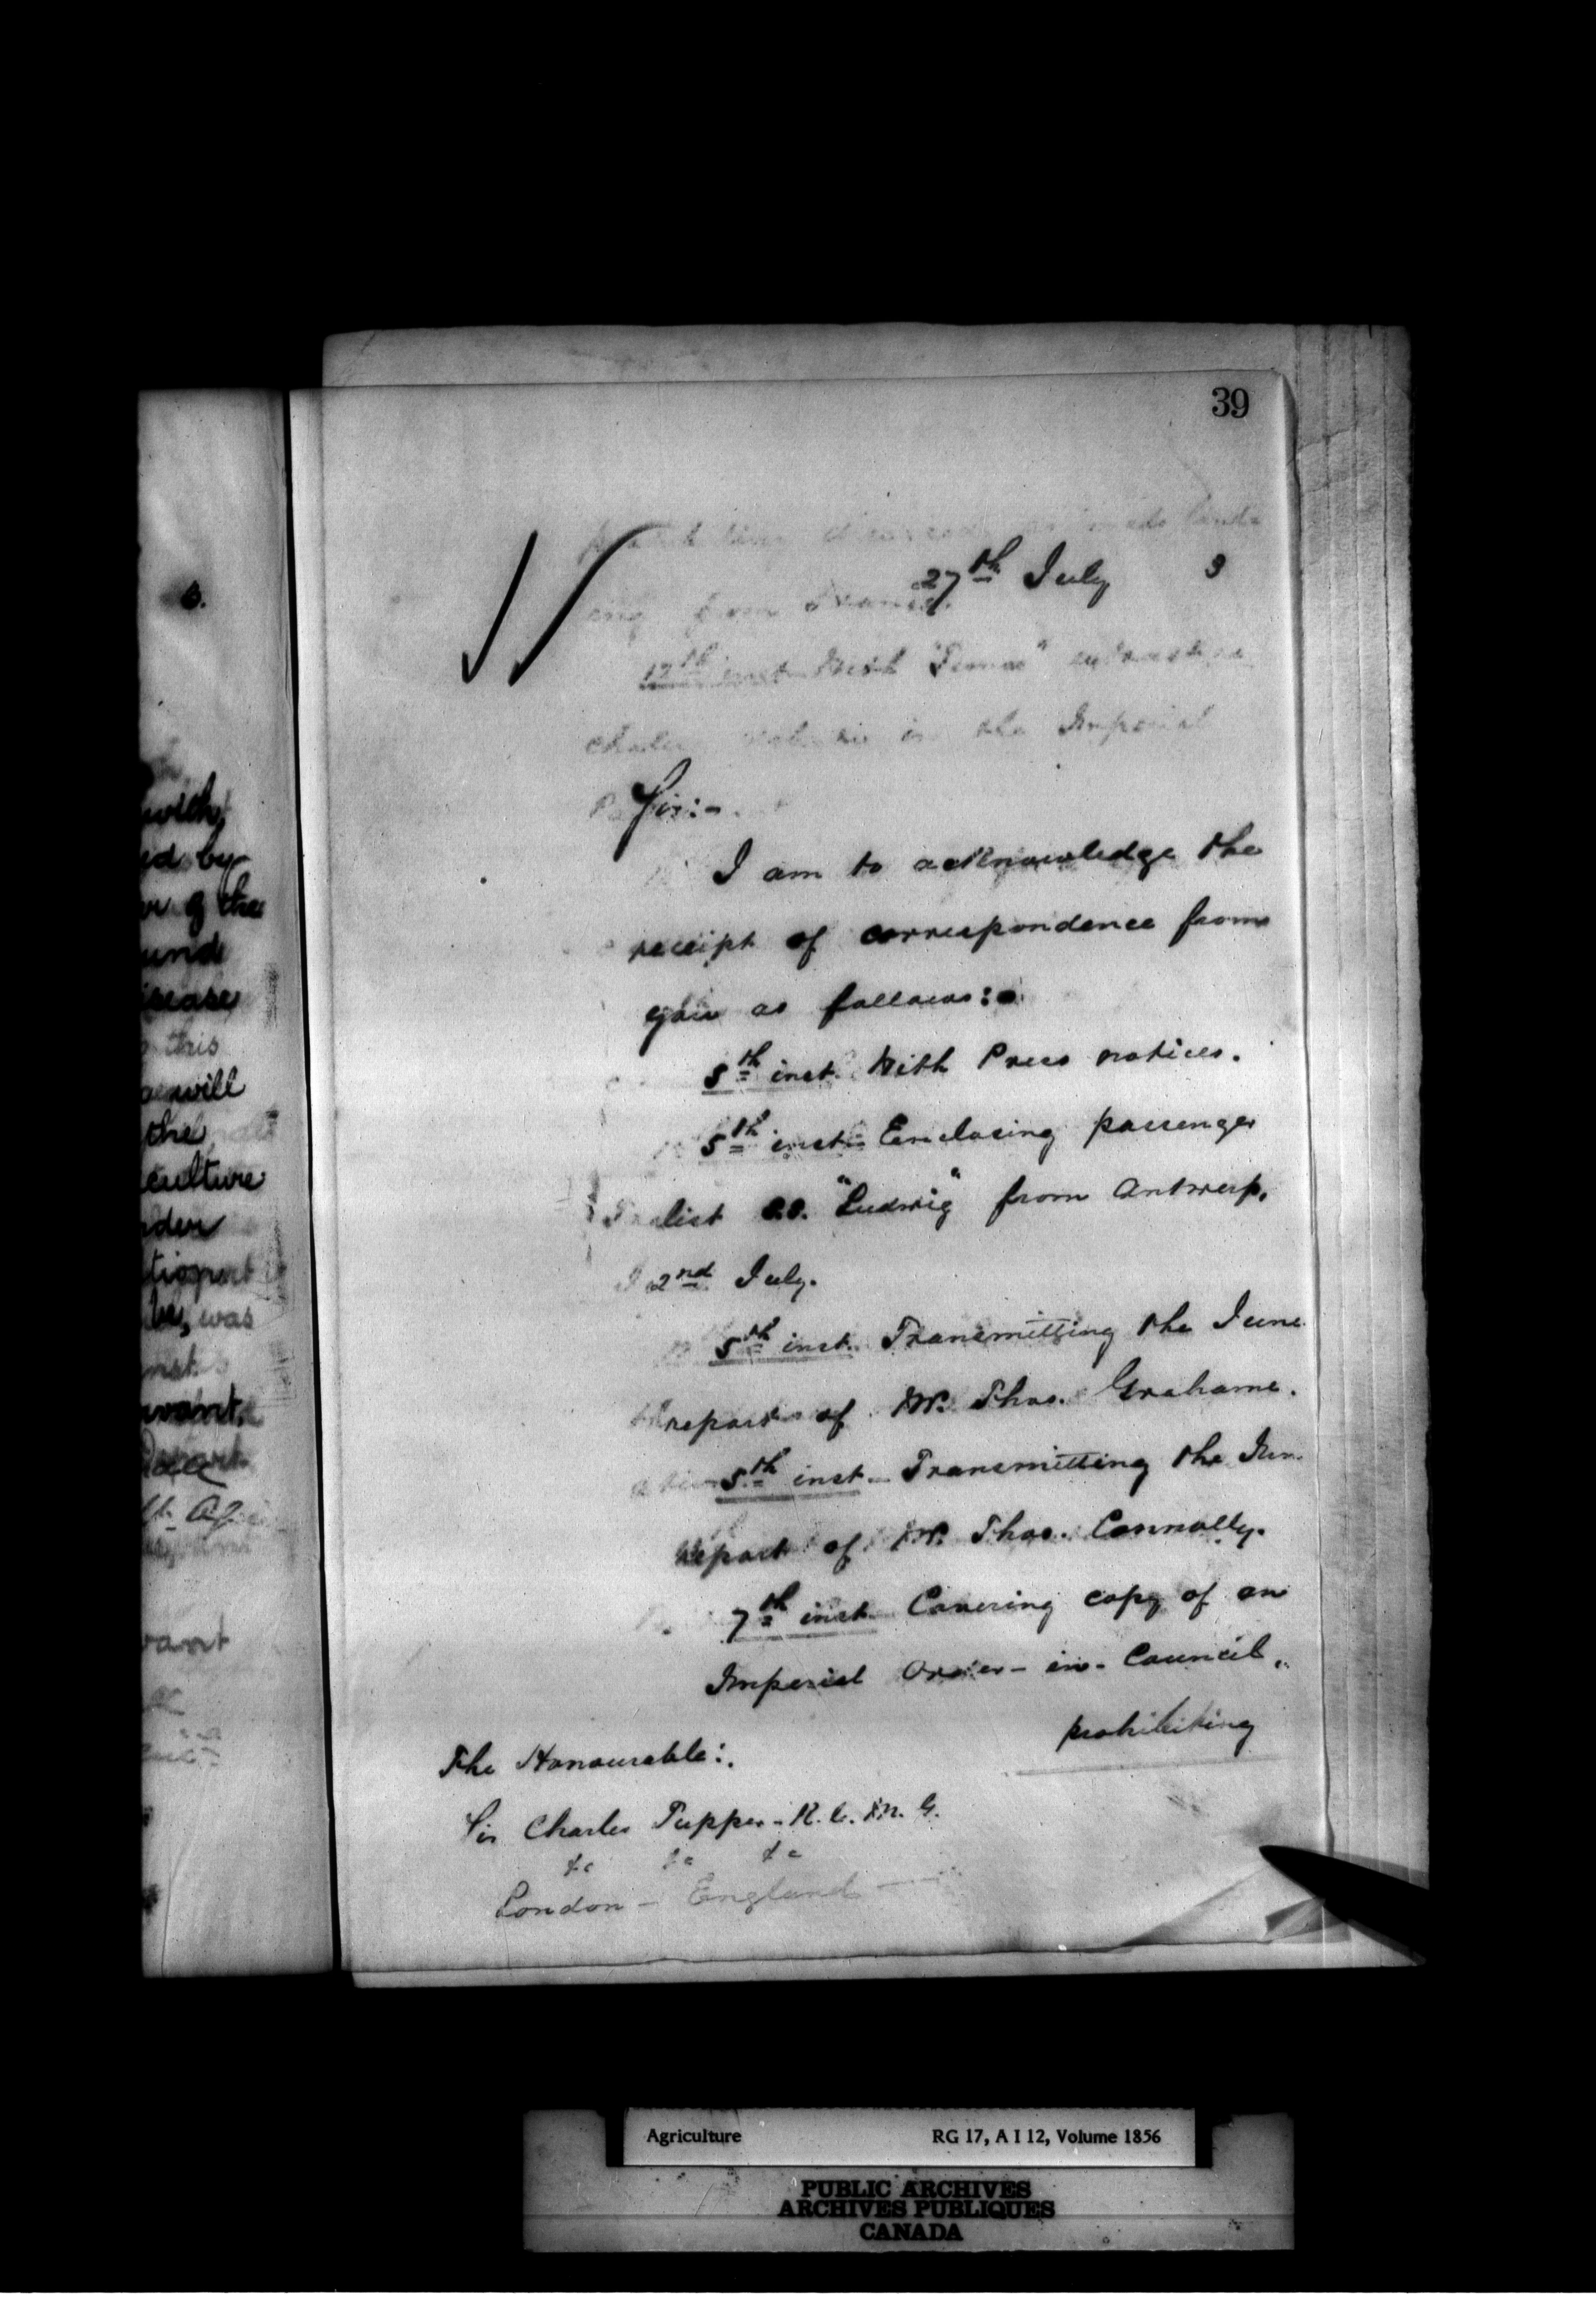 39
27th July 3
Sir:-
I am to acknowledge the
receipt of correspondence from
you as follows:-
5th inst. With Press notices.
5th inst- Enclosing passenger
list S.S. "Ludwig" from Antwerp,
2nd July.
5th inst. Transmitting the June
report of Mr. Thos. Grahame.
5th inst- Transmitting the June
Report of Mr. Thos. Connolly.
7th inst- Covering copy of an
Imperial Order-in-Council,
prohibiting
The Honourable:
Sir Charles Tupper-K.C.M.G.
&c &c &c
London - England
with
ed by
of the
und
isease
this
will
the
culture
was
vant
Agriculture RG 17, A I 12, Volume 1856
PUBLIC ARCHIVES
ARCHIVES PUBLIQUES
CANADA